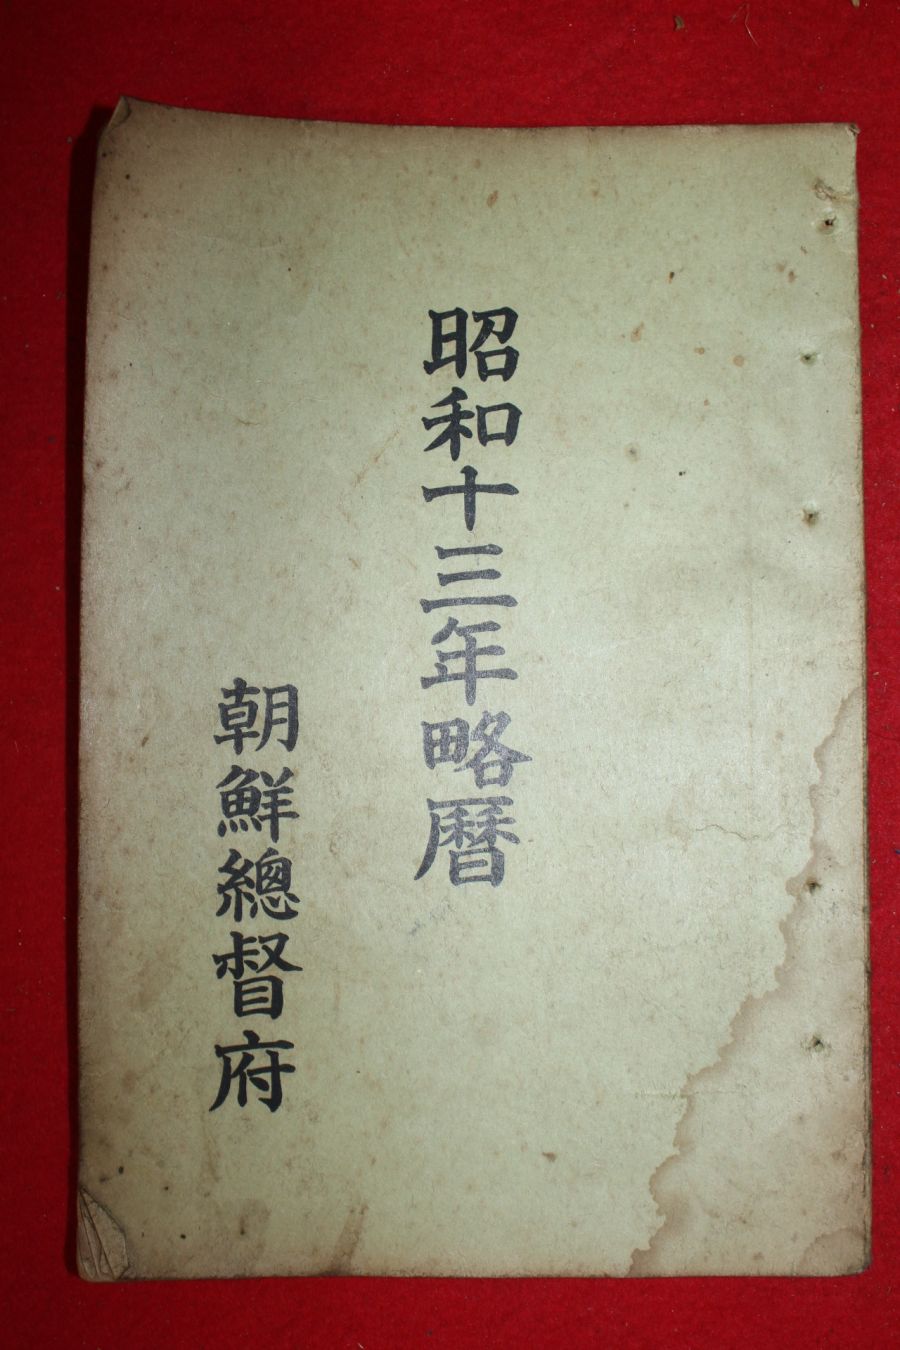 昭和十三年略暦
朝鮮總督府